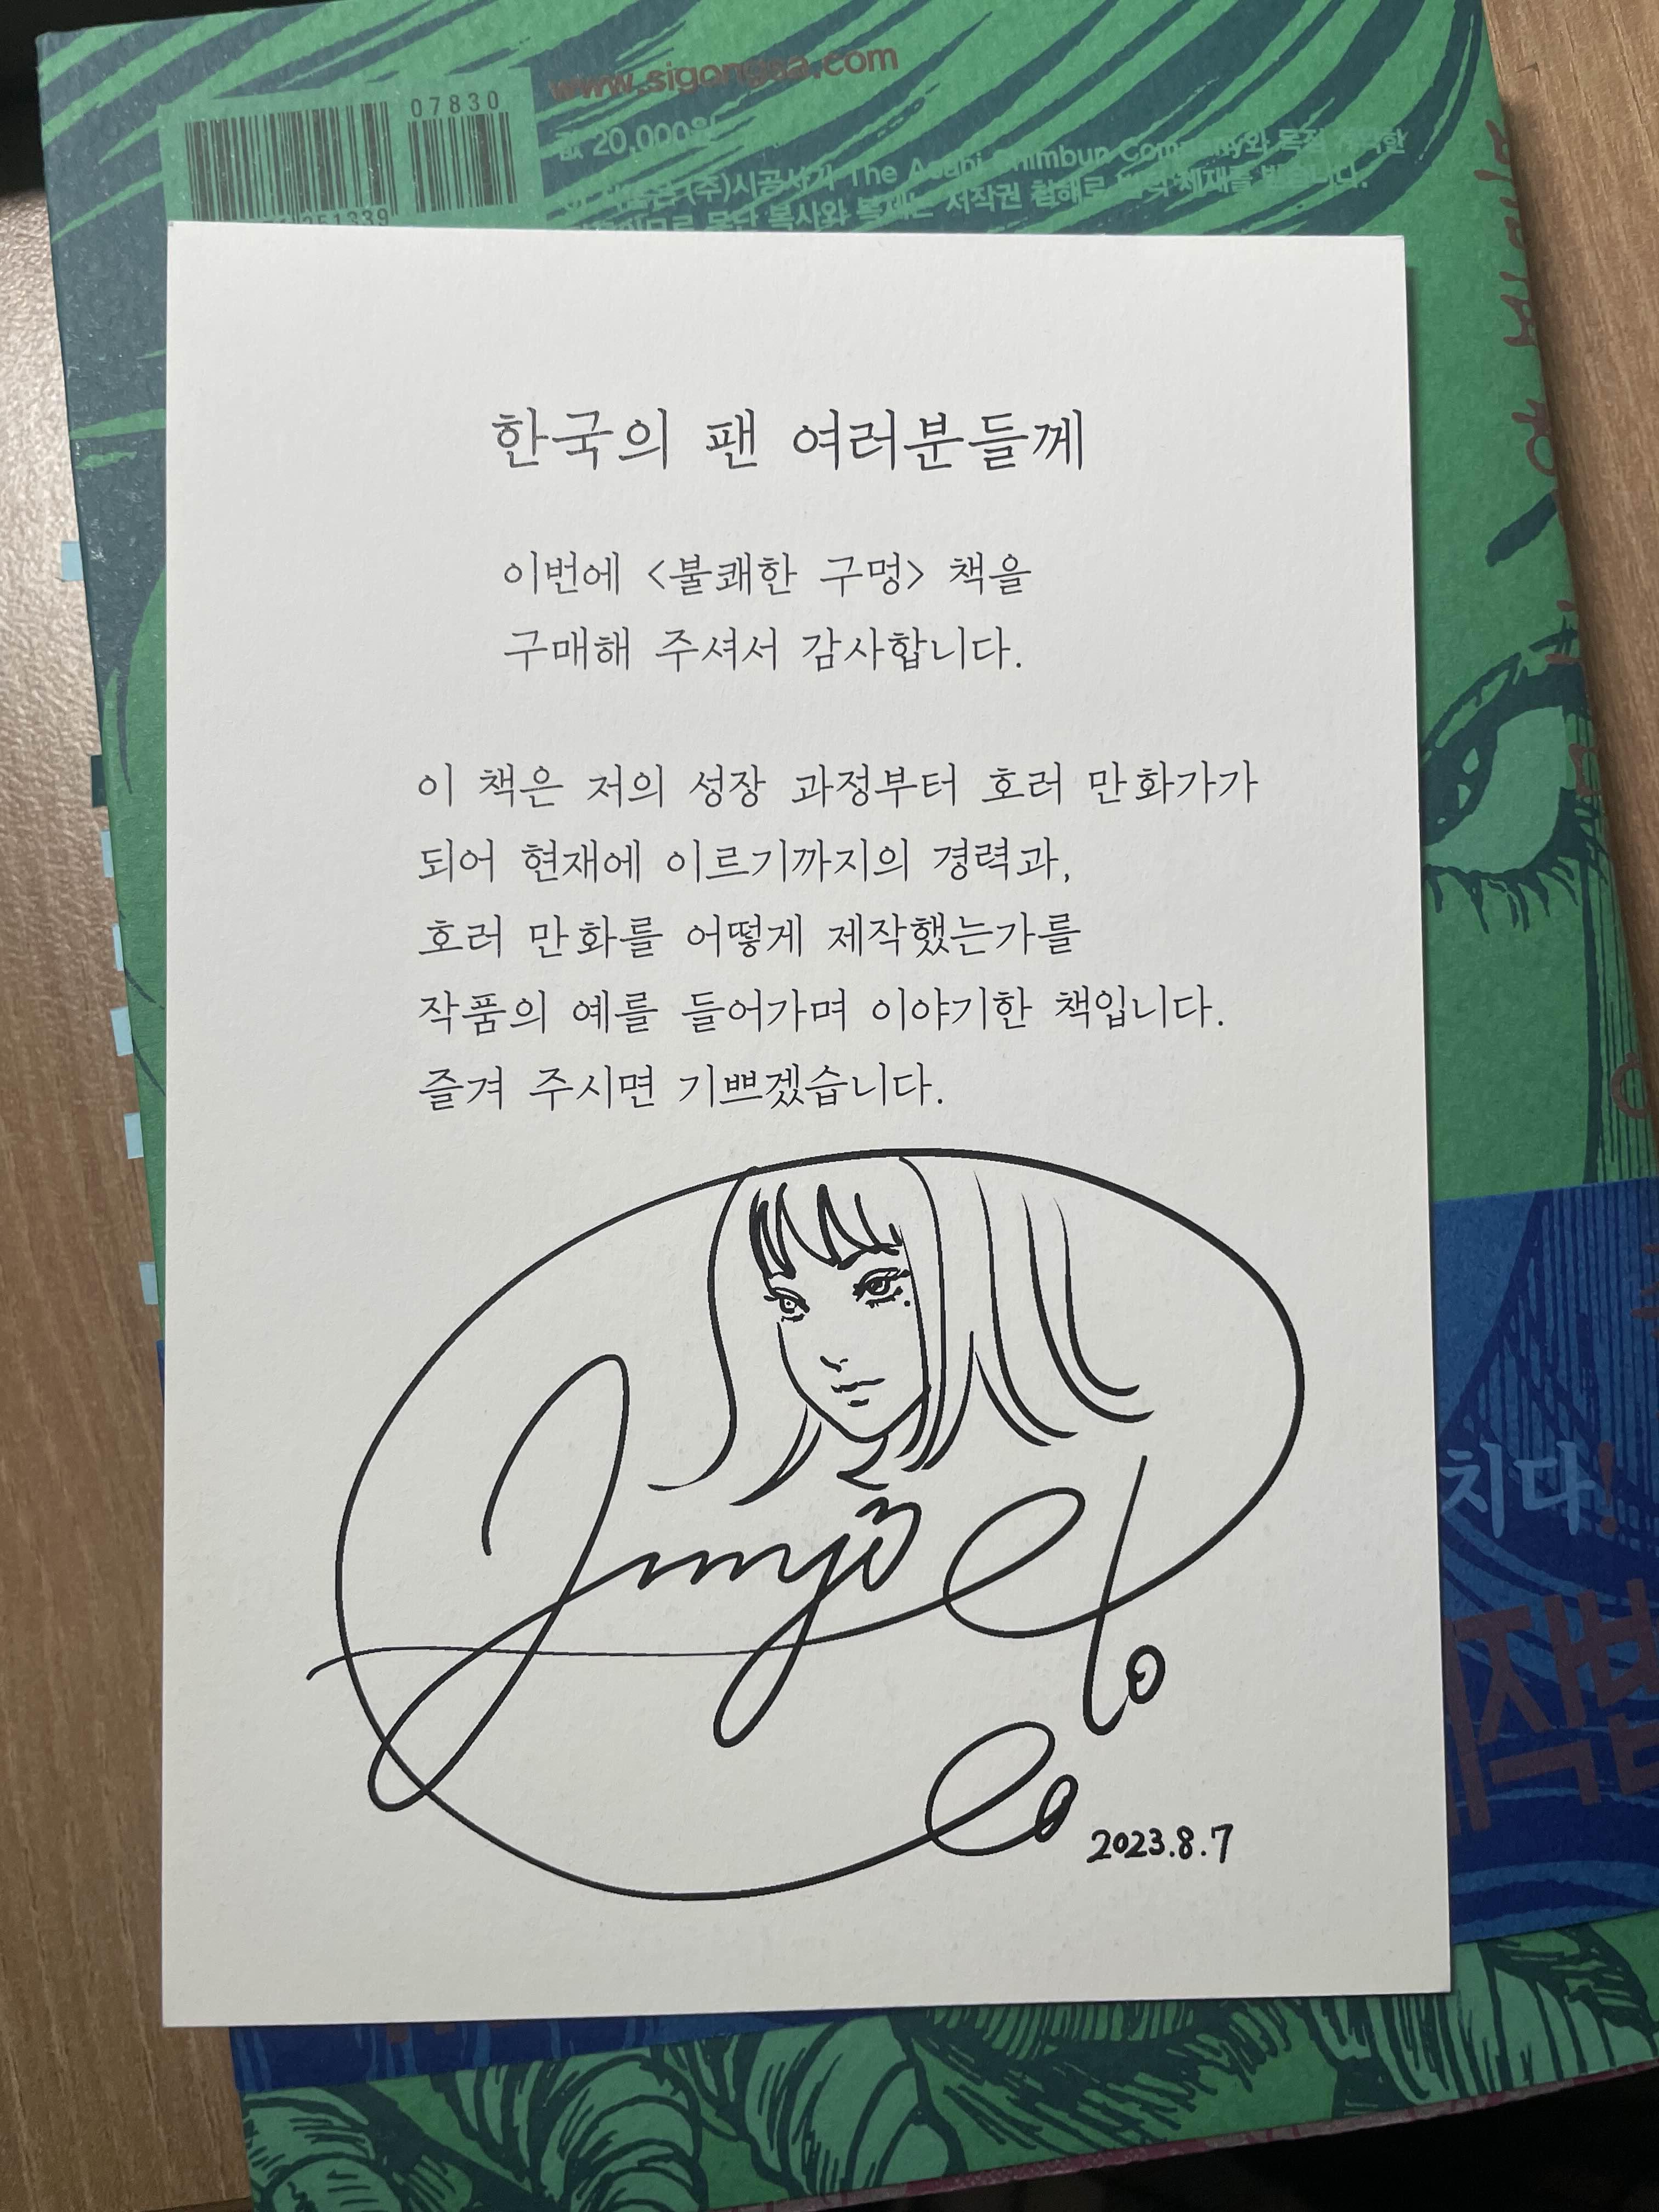 07830
www.sigongsa.com
값 20,000원
(주)시공사가 The Asahi Shimbun Company와 독점 계약한
무단 복사와 복제는 저작권 침해로 법적 제재를 받습니다.
251339
한국의 팬 여러분들께
이번에 <불쾌한 구멍> 책을
구매해 주셔서 감사합니다.
이 책은 저의 성장 과정부터 호러 만화가가
되어 현재에 이르기까지의 경력과,
호러 만화를 어떻게 제작했는가를
작품의 예를 들어가며 이야기한 책입니다.
즐겨 주시면 기쁘겠습니다.
Junji
2023.8.7
치다!